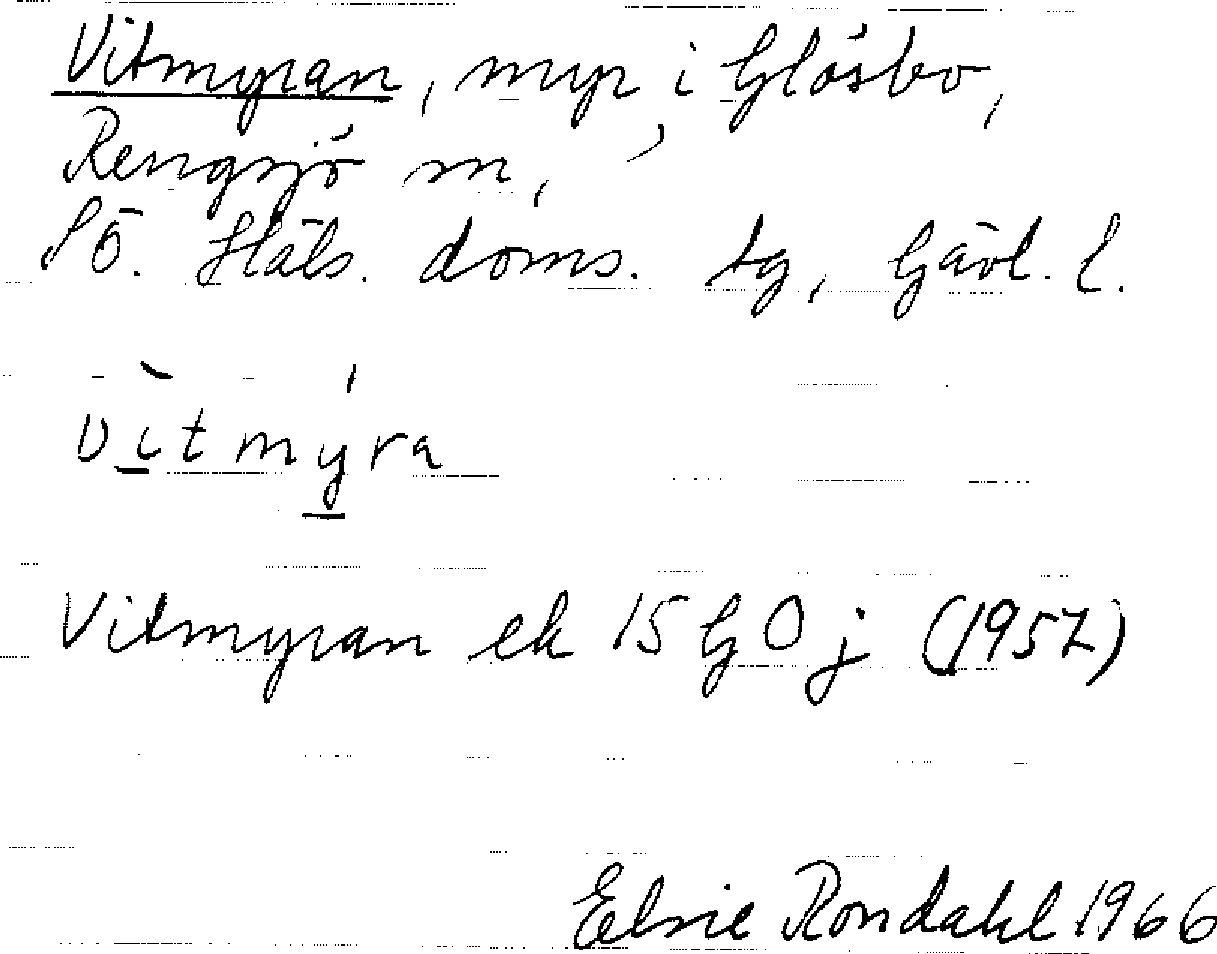 Vitmyran, myr i Glösbo,
Rengsjö sn,
SÖ. Häls. doms. tg, Gävl. l.
vìtmýra
Vitmyran ek 15 G 0 j (1957)
Elsie Rondahl 1966